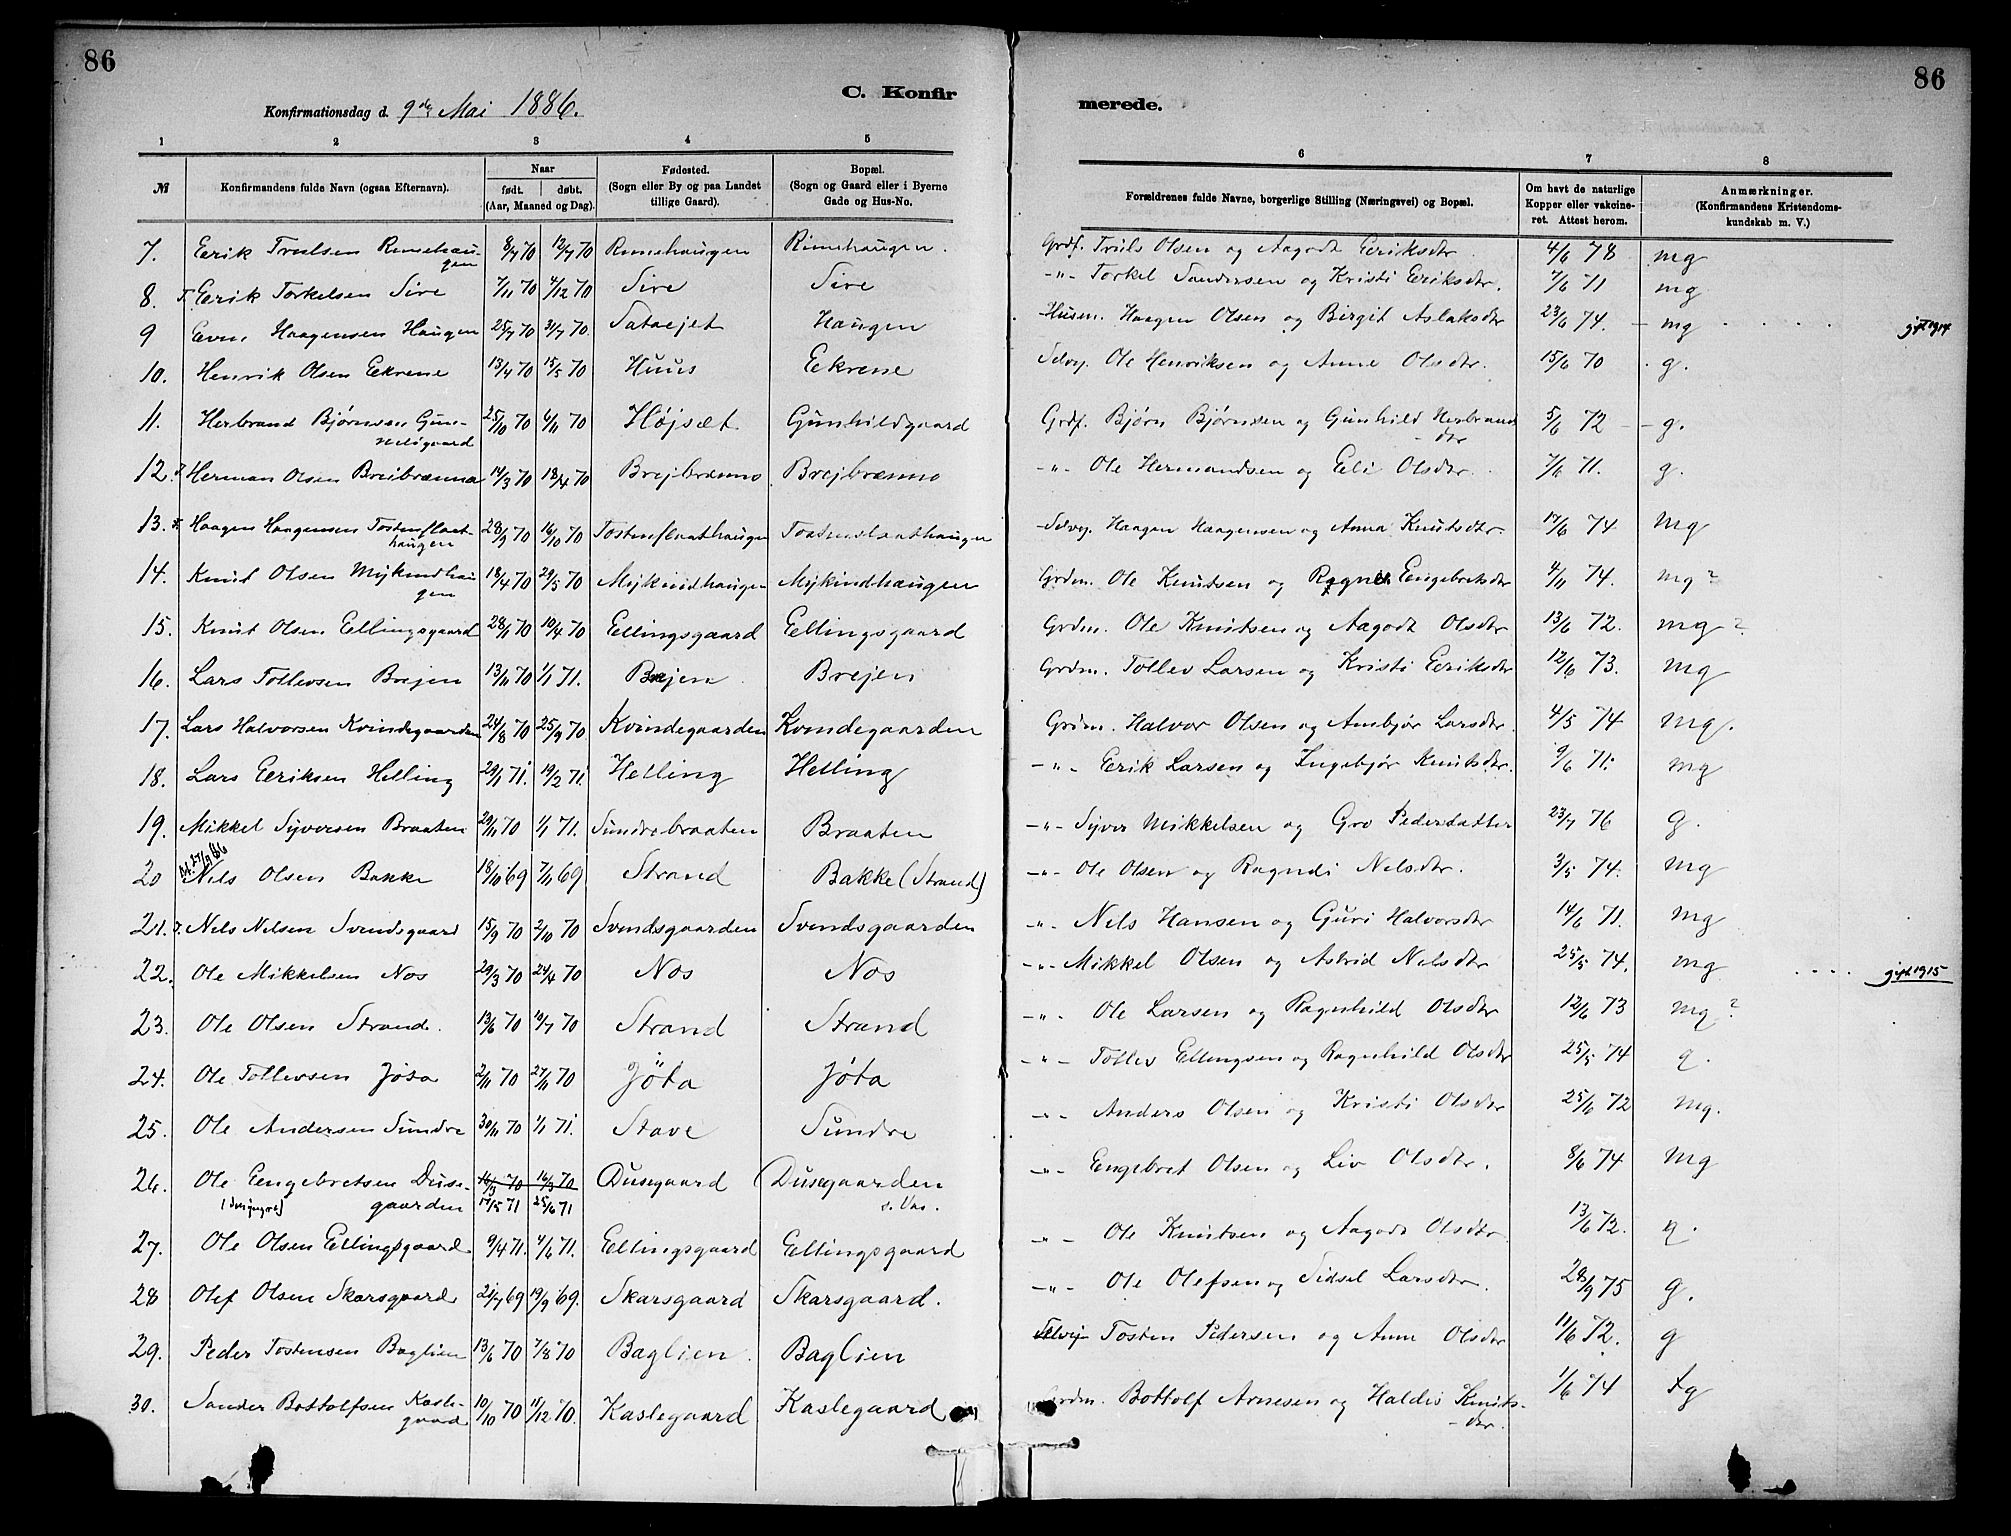 86
86
C. Konfir
merede.
Konfirmationsdag d. 9de Mai 1886.
1 2 3 4 5
6 7 8
№ Konfirmandens fulde Navn (ogsaa Efternavn). Naar født. døbt. (Aar, Maaned og Dag). Fødested. (Sogn eller By og paa Landet tillige Gaard). Bopæl. (Sogn og Gaard eller i Byerne Gade og Hus-No.
Forældrenes fulde Navne, borgerlige Stilling (Næringsvei) og Bopæl. Om havt de naturlige Kopper eller vakcineret. Attest herom. Anmærkninger. (Konfirmandens Kristendomskundskab m. V.)
7. Erik Trulsen Rimehaugen 8/7 70 12/7 70 Rimehaugen Rimehaugen. Grdf. Truls Olsen og Aagodt Eeriksdtr. 4/6 78 mg
8. Eerik Torkelsen Sire 7/11 70 4/12 70 Sire Sire -"- Torkel Sandersen og Kristi Eeriksdtr. 7/6 71 mg
9 Even Haagensen Haugen 25/7 70 31/7 70. Sataejet Haugen Husm. Haagen Olsen og Birgit Aslaksdtr 23/6 74. mg gift 1914
10. Henrik Olsen Eekrene 13/4 70 15/5 70 Huus Eekrene Selvej. Ole Henriksen og Anne Olsdtr. 15/6 70 g.
11. Herbrand Bjørnsen Gunhildgaard 25/10 70 6/11 70 Højsæt Gunhildgaard Grdf. Bjørn Bjørnsen og Gunhild Herbrandsdtr 5/6 72 g.
12. Herman Olsen Breibrænna 14/3 70 18/4 70 Brejbrænno Brejbrænno -"- Ole Hermandsen og Eeli Olsdtr. 7/6 71. g.
13. Haagen Haagensen Tostenflaathaugen 28/9 70 16/10 70 Tostenflaathaugen Tostenflaathaugen Selvej. Haagen Haagensen og Anna Knutsdtr. 17/6 74 mg
14. Knut Olsen Mykindhaugen 18/4 70 29/5 70 Mijkindhaugen Mijkindhaugen Grdm. Ole Knutsen og Ragnei Eengebretsdtr 4/11 74. mg?
15. Knut Olsen Eellingsgaard 28/1 70 10/4 70 Eellingsgaard Eellingsgaard Grdm. Ole Knutsen og Aagodt Olsdtr 13/6 72. mg?
16. Lars Tollevsen Brejen 13/11 70 1/1 71. Brejen Brejen Grdm. Tollev Larsen og Kristi Eeriksdtr 12/6 73. mg
17. Lars Halvorsen Kvindegaarden 24/8 70 25/9 70 Kvindegaarden Kvindegaarden Grdm. Halvor Olsen og Ambjør Larsdtr. 4/5 74 mg.
18. Lars Eeriksen Helling 29/1 71. 19/2 71. Helling Helling -"- Eerik Larsen og Ingebjør Knutsdtr. 9/6 71. mg
19. Mikkel Syversen Braaten 29/11 70 1/1 71. Sundrebraaten Braaten -"- Syver Mikkelsen og Gro Pedersdatter 23/7 76 g.
20 Nels Olsen Bakke 18/10 69 7/11 69 Strand Bakke (Strand) -"- Ole Olsen og Ragndi Nelsdtr. 3/5 74. mg
21. Nels Nelsen Svendsgaard 15/9 70 2/10 70 Svendsgaarden Svendsgaarden -"- Nels Hansen og Guri Halvorsdtr 14/6 71. mg
22. Ole Mikkelsen Nos 29/3 70 24/4 70 Nos Nos -"- Mikkel Olsen og Astrid Nelsdtr 25/5 74. mg gift 1915
23. Ole Olsen Strand. 13/6 70 10/7 70 Strand Strand -"- Ole Larsen og Ragnhild Olsdtr 12/6 73 mg?
24. Ole Tollevsen Jøta 2/11 70 27/11 70 Jøta Jøta -"- Tollev Ellingsen og Ragnhild Olsdtr 25/5 74 g.
25. Ole Andersen Sundre 30/11 70 1/1 71. Stave Sundre -"- Anders Olsen og Kristi Olsdtr 25/6 72 mg.
26. Ole Eengebretsen Dusegaarden 16/3 70 16/3 70 17/5 71 25/6 71 Dusegaard (Dusegaarden -"- Eengebret Olsen og Liv Olsdtr. 8/6 74 mg
27. Ole Olsen Eellingsgaard 9/4 71. 4/6 71. Eellingsgaard Eellingsgaard -"- Ole Knutsen og Aagodt Olsdtr 13/6 72. g.
28 Olef Olsen Skarsgaard 21/7 69 19/9 69. Skarsgaard Skarsgaard. -"- Ole Olefsen og Sidsel Larsdtr. 28/9 75 g.
29. Peder Tostensen Baglien 13/6 70 7/8 70 Baglien Baglien Selvej Tosten Pedersen og Anne Olsdtr 11/6 72. g
30. Sander Bottolfsen Kaslegaard 10/10 70 11/12 70. Kaslegaard Kaslegaard Grdm. Bottolf Arnesen og Haldis Knutsdtr. 1/6 74 tg